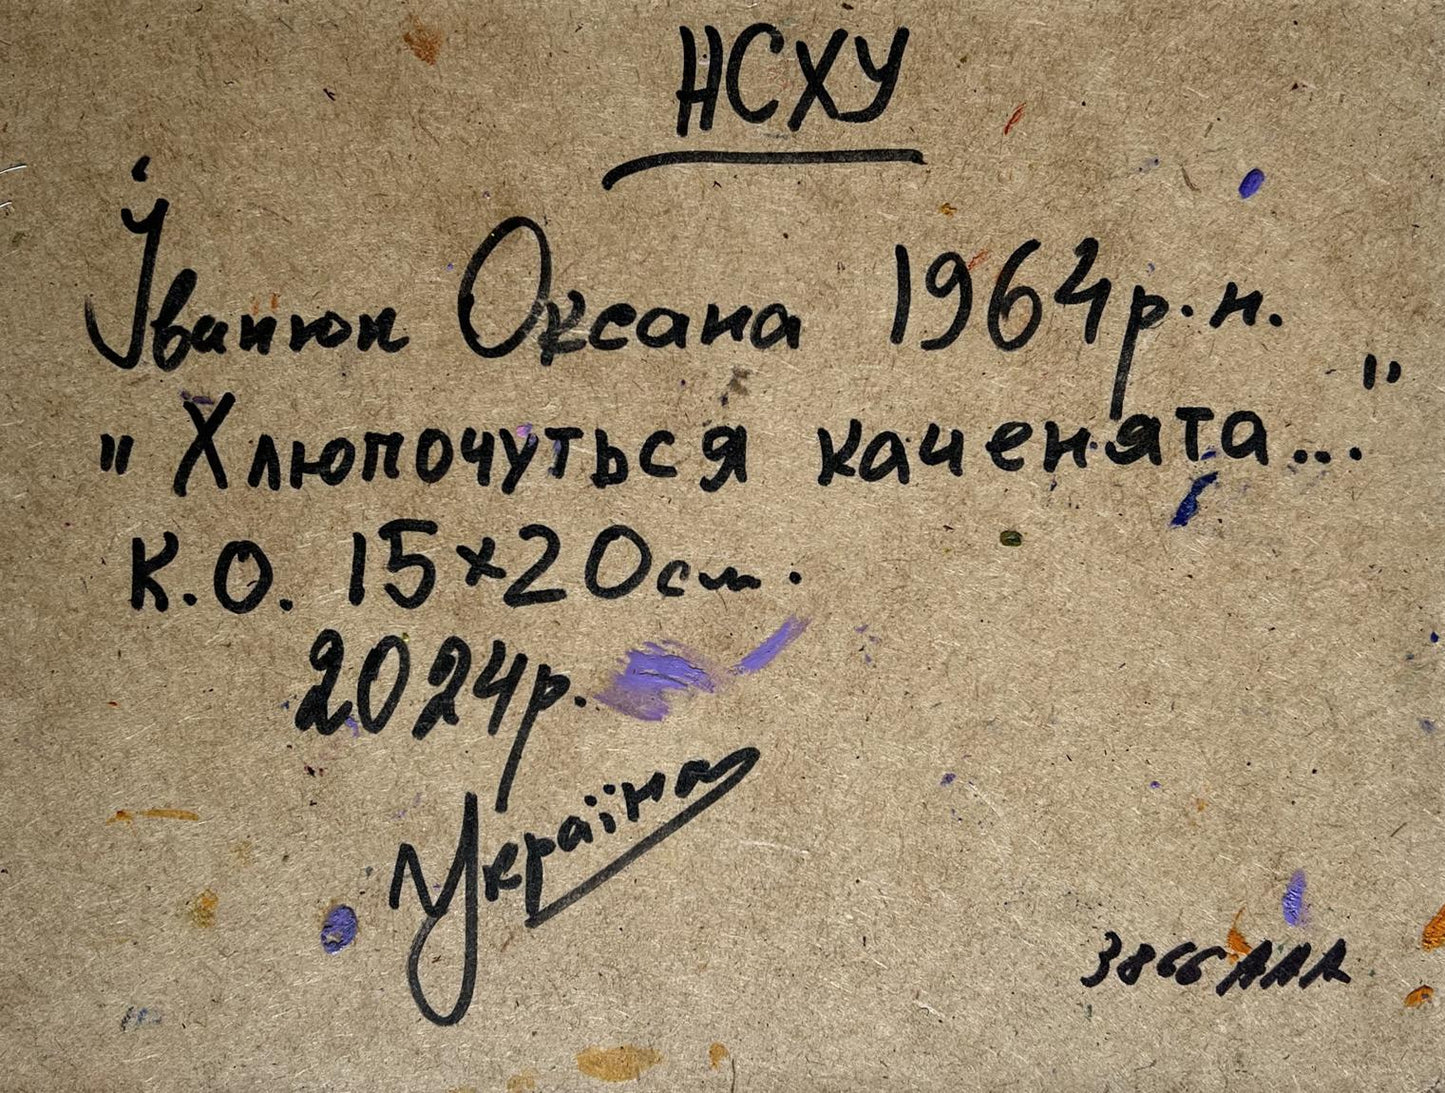 НСХУ
Іванюк Оксана 1964 р.н.
"Хлюпочуться каченята..."
К.О. 15×20 см.
2024р.
Україна
3866 AAA